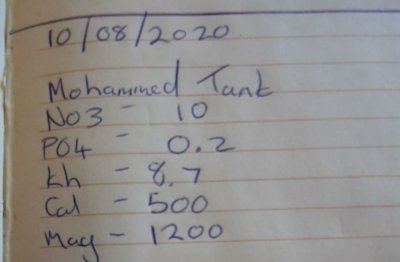 10/08/2020
Mohammed Tank
NO3 - 10
PO4 - 0.2
kh - 8.7
Cal - 500
Mag - 1200